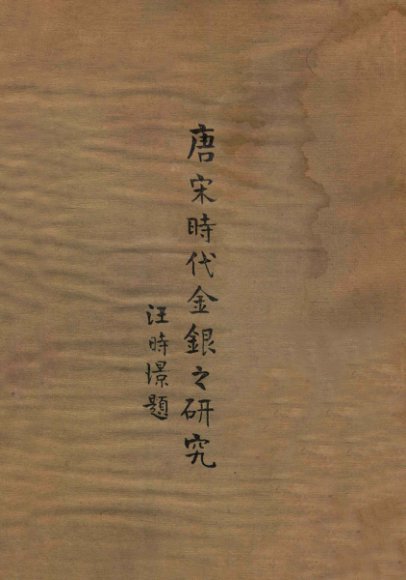 唐宋時代金銀之研究
汪時璟題